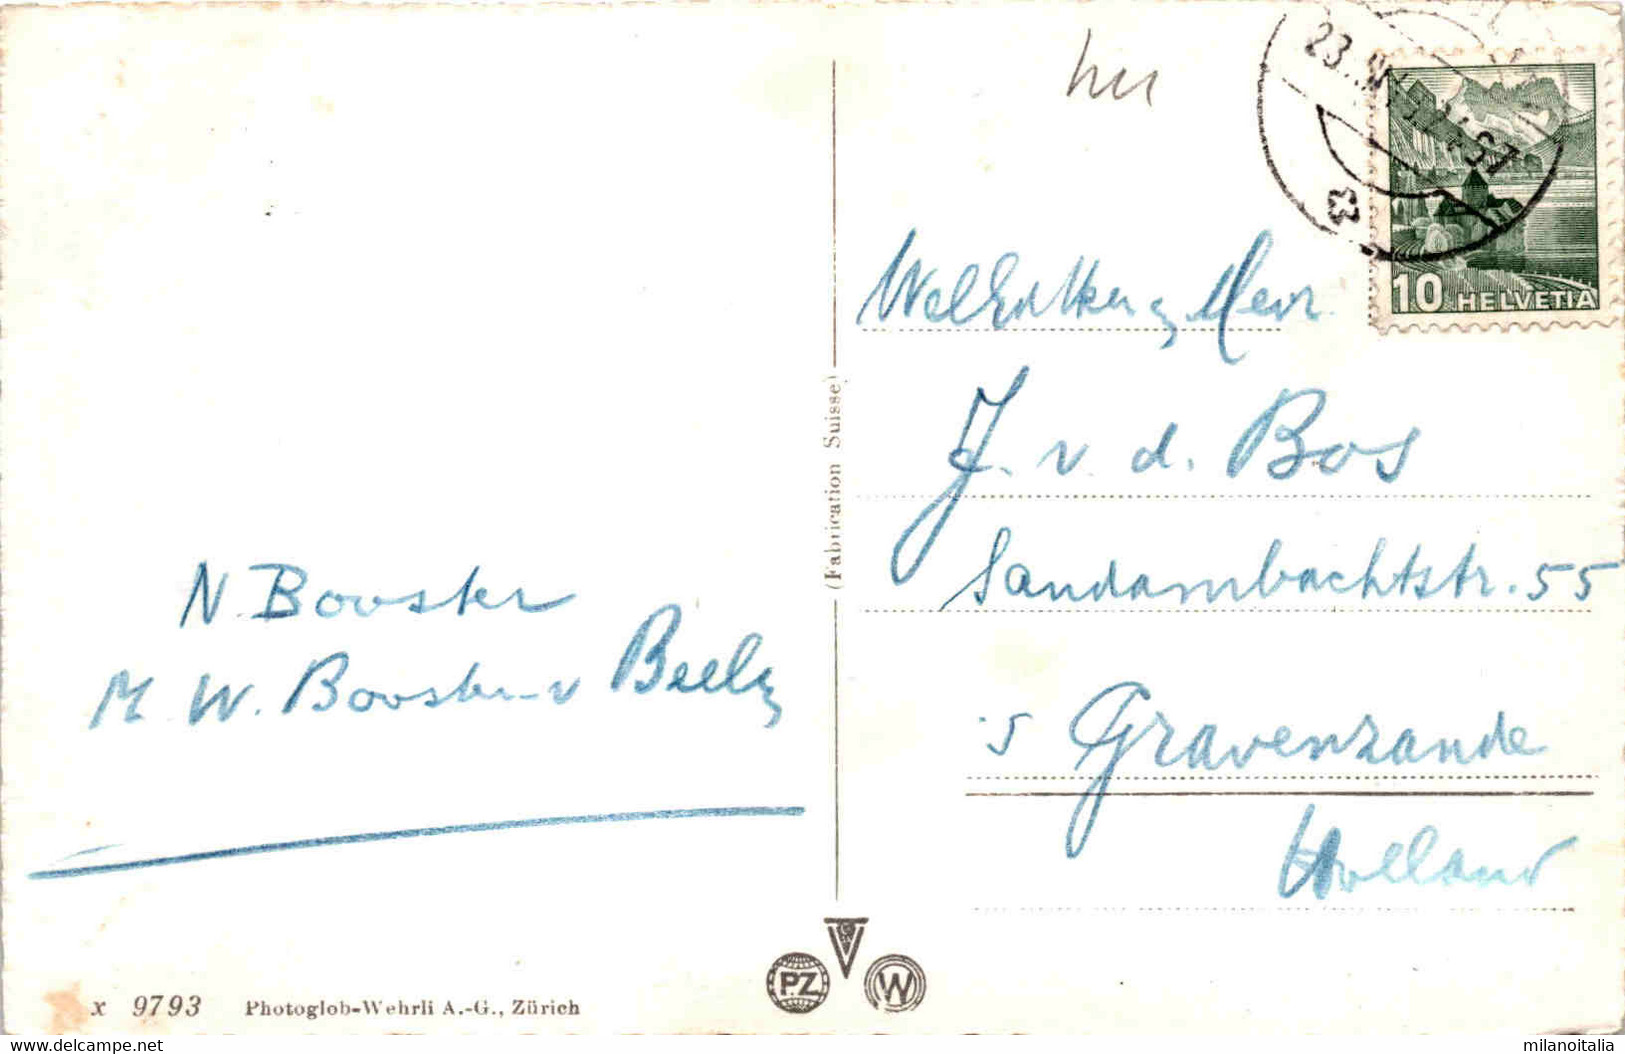 N. Booster
M. W. Booster - v Beelz
x 9793 Photoglob-Wehrli A.-G., Zürich
(Fabrication Suisse)
PZ
W
23.
10 HELVETIA
Heer
J. v. d. Bos
Sandambachtstr. 55
's Gravenzande
Holland
www.delcampe.net
milanoitalia